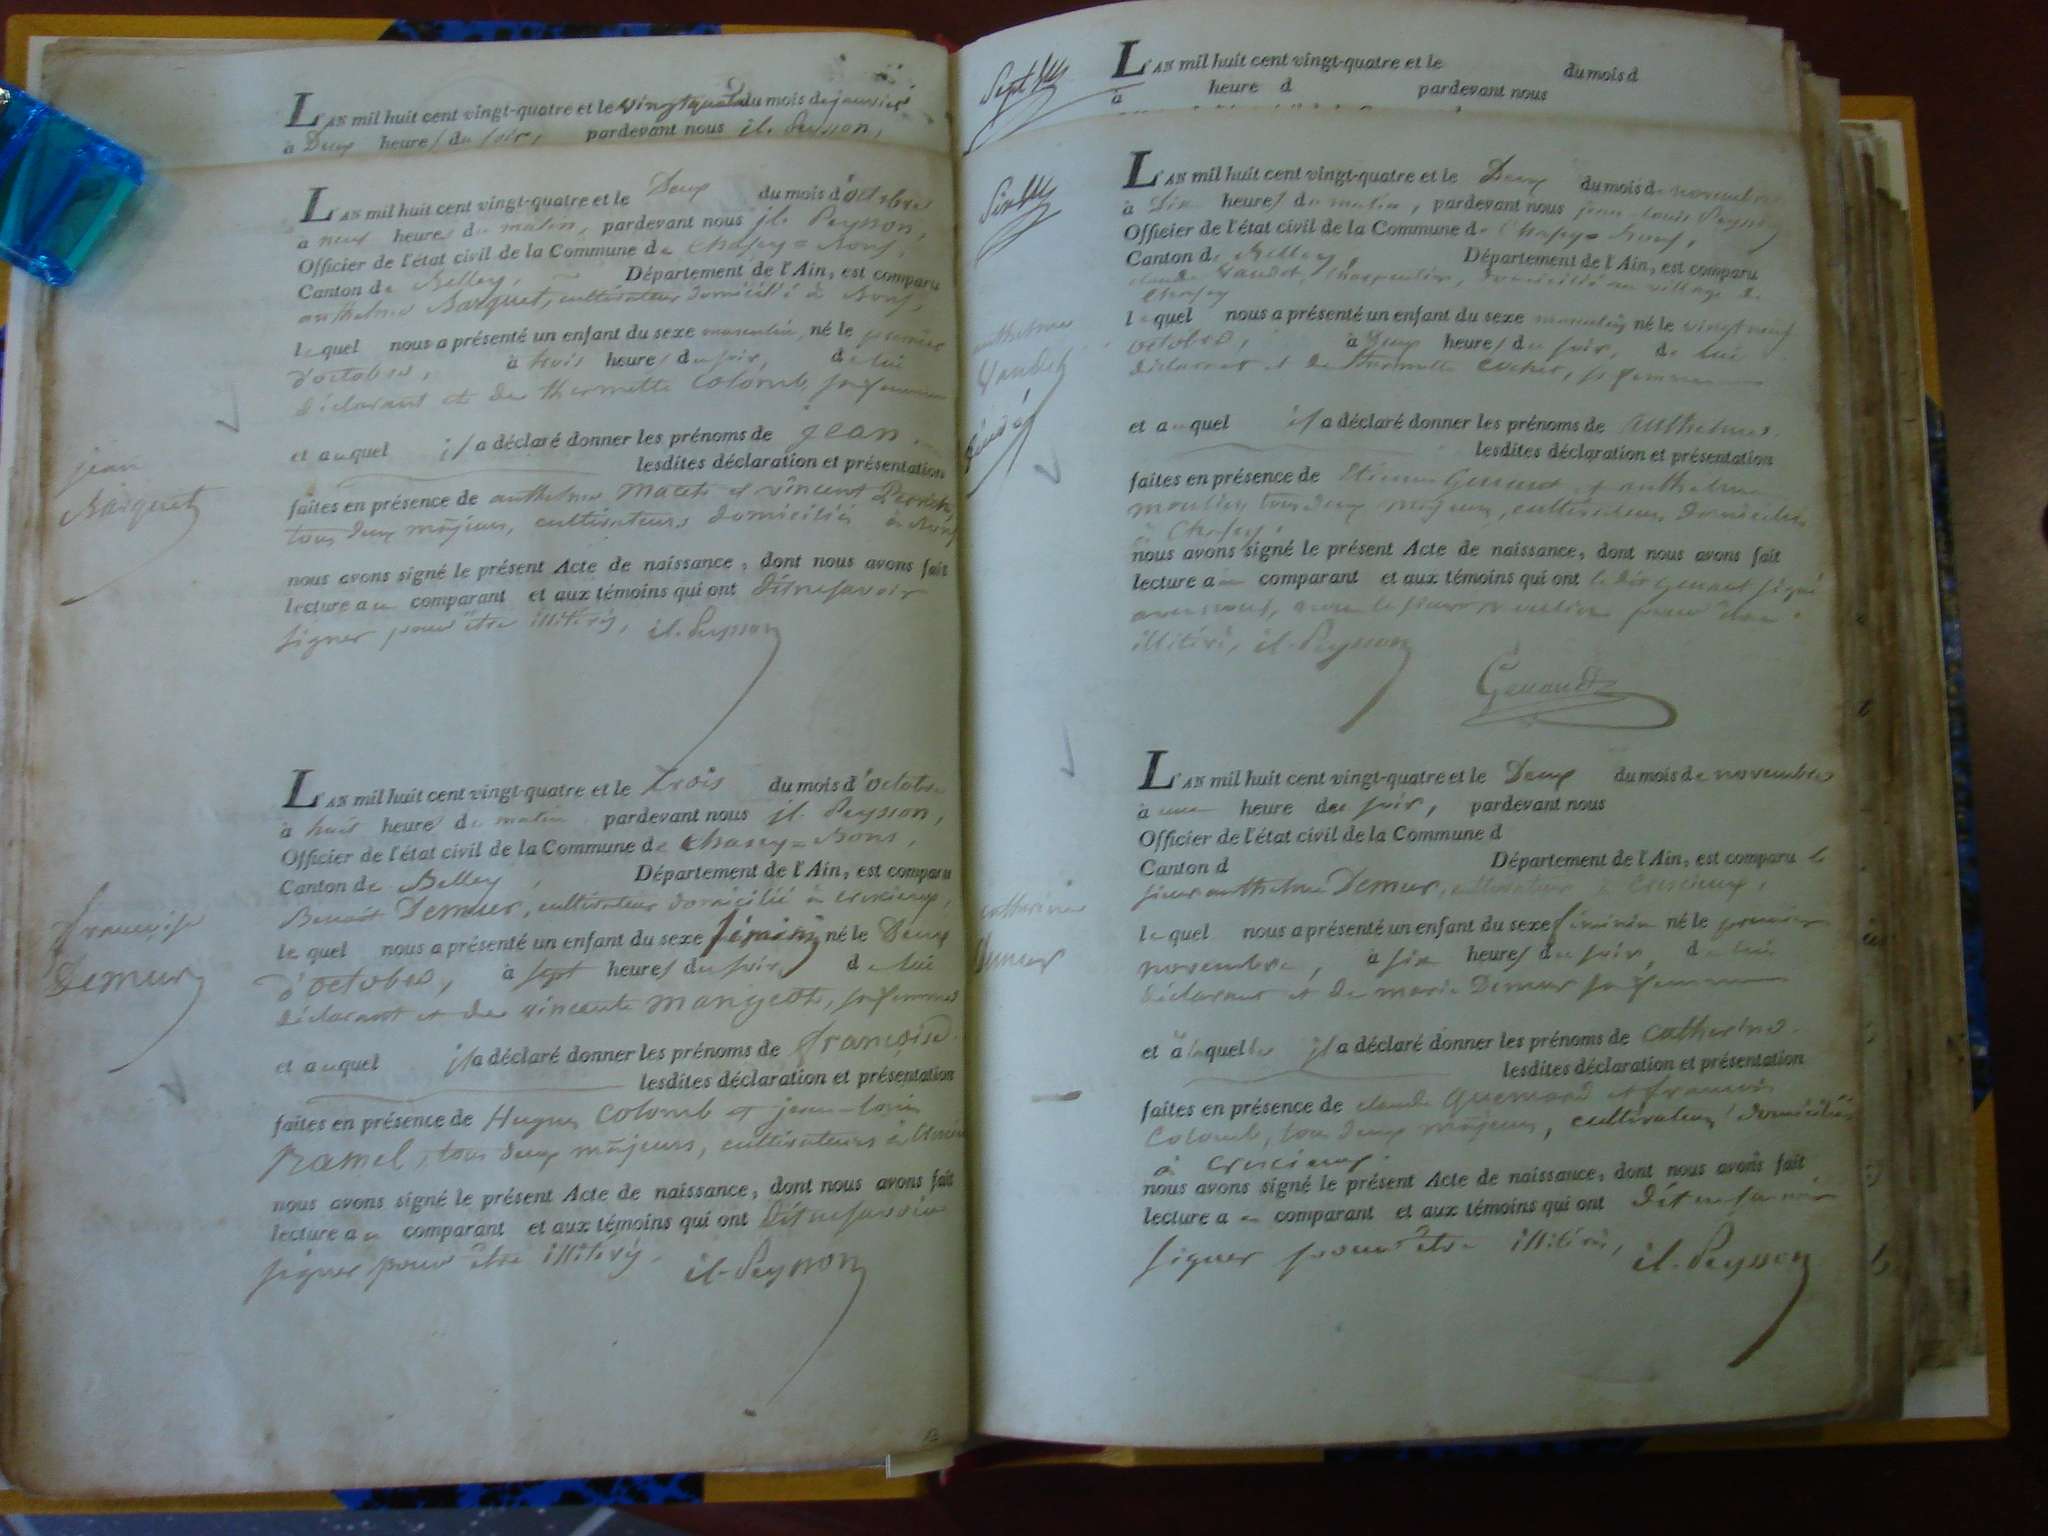 L'AN mil huit cent vingt-quatre et le vingtquatre du mois de janvier
à Deux heures du soir, pardevant nous jl. Peysson,
L'AN mil huit cent vingt-quatre et le Deux du mois d'octobre
a neuf heures du matin, pardevant nous jl. Peysson,
Officier de l'état civil de la Commune de Chasey=Bons,
Canton de Belley, Département de l'Ain, est comparu
anthelme Barquet, cultivateur domicilié à Bons,
lequel nous a présenté un enfant du sexe masculin, né le premier
d'octobre, à trois heures du soir, de lui
déclarant et de thermette Colomb, sa femme
et auquel il a déclaré donner les prénoms de jean.
lesdites déclaration et présentation
faites en présence de anthelme et vincent
tous deux majeurs, cultivateurs domiciliés à Bons
nous avons signé le présent Acte de naissance, dont nous avons fait
lecture au comparant et aux témoins qui ont dit ne savoir
signer pour être illitérés, jl. Peysson
jean
Barquet
L'AN mil huit cent vingt-quatre et le trois du mois d'octobre
à huit heures du matin pardevant nous jl. Peysson,
Officier de l'état civil de la Commune de Chasey=Bons,
Canton de Belley, Département de l'Ain, est comparu
Benoit Demeur, cultivateur domicilié à crescieux,
lequel nous a présenté un enfant du sexe féminin né le Deux
d'octobre, à sept heures du soir, de lui
déclarant et de vincente mangeot, sa femme
et auquel il a déclaré donner les prénoms de françoise.
lesdites déclaration et présentation
faites en présence de Hugues Colomb et jean-louis
Ramel, tous deux majeurs, cultivateurs à
nous avons signé le présent Acte de naissance, dont nous avons fait
lecture au comparant et aux témoins qui ont dit ne savoir
signer pour être illitérés. jl. Peysson
françoise
Demeur
L'AN mil huit cent vingt-quatre et le du mois d
à heure d pardevant nous
L'AN mil huit cent vingt-quatre et le Deux du mois de novembre
à Dix heures du matin, pardevant nous jean-louis Peysson
Officier de l'état civil de la Commune de Chasey=Bons,
Canton de Belley, Département de l'Ain, est comparu
claude Vaudet, charpentier, domicilié au village de
Chasey
lequel nous a présenté un enfant du sexe masculin né le vingt neuf
octobre, à Deux heures du soir, de lui
déclarant et de thermette, sa femme
et auquel il a déclaré donner les prénoms de anthelme.
lesdites déclaration et présentation
faites en présence de Etienne Genaud et anthelme
tous deux majeurs, cultivateurs domiciliés
à Chasey,
nous avons signé le présent Acte de naissance, dont nous avons fait
lecture au comparant et aux témoins qui ont le dit Genaud signé
avec nous, pour être
illitéré, jl. Peysson
Genaud
anthelme
Vaudet
L'AN mil huit cent vingt-quatre et le Deux du mois de novembre
à une heure du soir, pardevant nous
Officier de l'état civil de la Commune d
Canton d Département de l'Ain, est comparu le
sieur anthelme Demeur, cultivateur à Crescieux,
lequel nous a présenté un enfant du sexe féminin né le premier
novembre, à six heures du soir, de lui
déclarant et de marie Demeur sa femme
et à laquelle il a déclaré donner les prénoms de catherine.
lesdites déclaration et présentation
faites en présence de claude et francois
Colomb, tous deux majeurs, cultivateurs domiciliés
à crescieux.
nous avons signé le présent Acte de naissance, dont nous avons fait
lecture au comparant et aux témoins qui ont dit ne savoir
signer pour être illitérés, jl. Peysson
catherine
Demeur